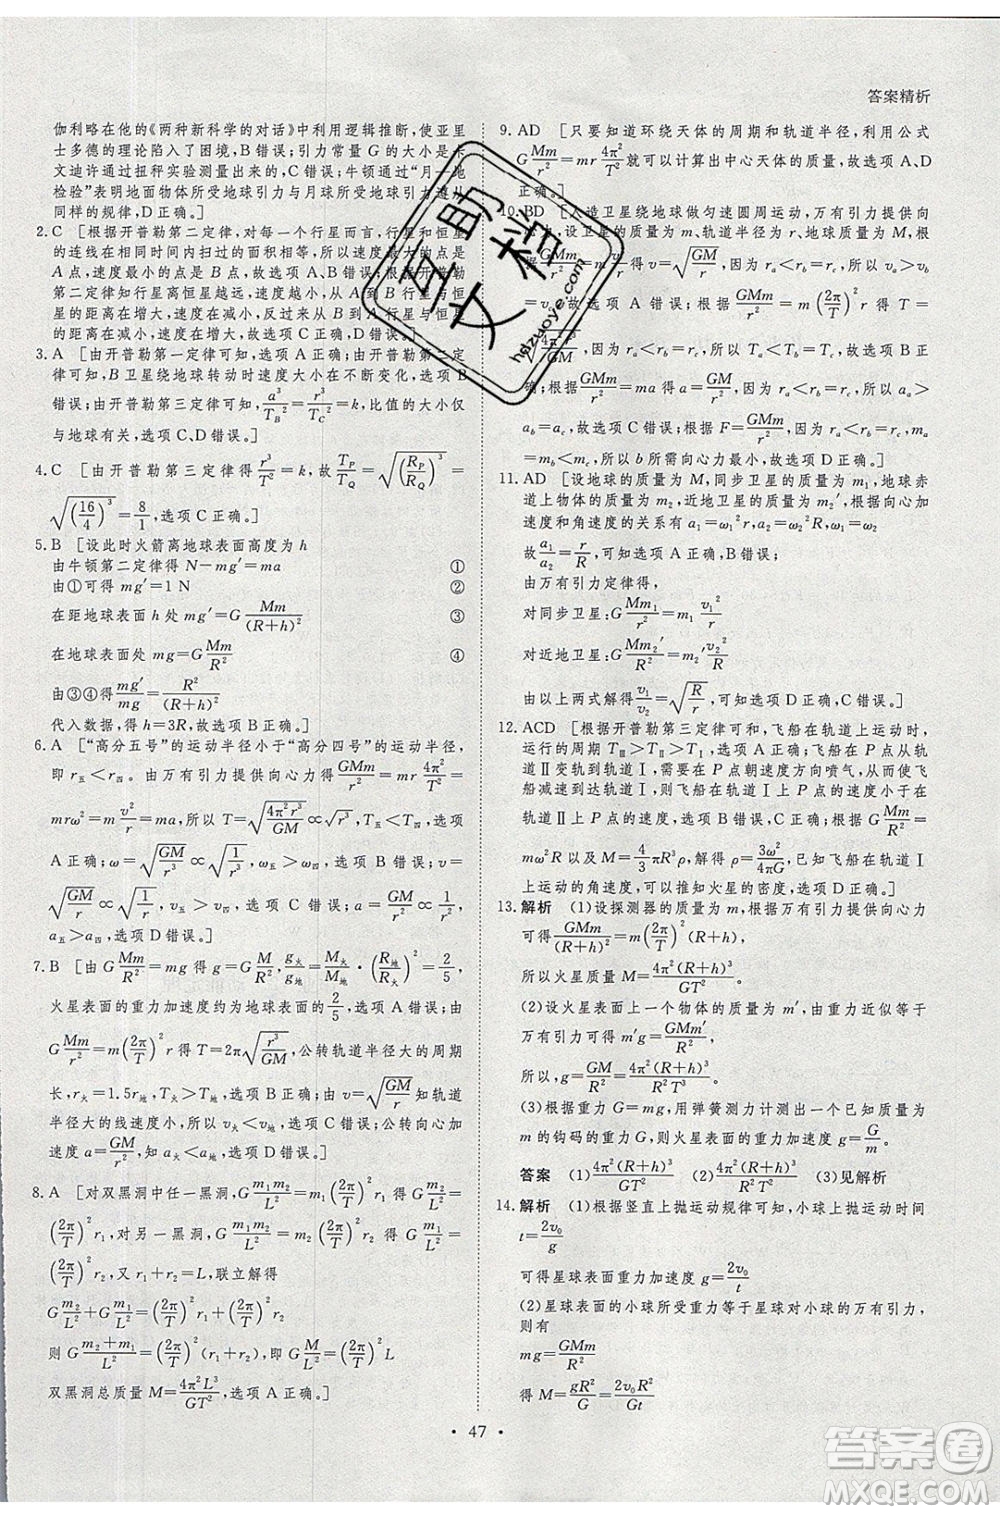 答案精析
伽利略在他的《两种新科学的对话》中利用逻辑推断,使亚里
士多德的理论陷入了困境,B错误;引力常量G的大小是卡
文迪许通过扭秤实验测量出来的,C错误;牛顿通过“月—地
检验”表明地面物体所受地球引力与月球所受地球引力遵从
同样的规律,D正确。]
2.C [由开普勒第二定律知,对每一个行星而言,行星和恒星
的连线在相同时间内扫过的面积相等,所以速度最大的点是
A点,速度最小的点是B点,选项A、B错误;由开普勒
第二定律知行星离恒星越远,速度越小,行星从A到B与恒星
的距离在增大,速度在减小,反过来从B到A行星与恒星
的距离在减小,速度在增大,故选项C正确,D错误。]
3.A [由开普勒第一定律可知选项A正确;由开普勒第二定律
可知,B卫星绕地球转动时速度大小在不断变化,选项B错
误;由开普勒第三定律可知,a³/T_B²=r³/T_C²=k,比值的大小仅
与地球有关,选项C、D错误。]
4.C [由开普勒第三定律得r³/T²=k,故T_P/T_Q=√(R_P/R_Q)³=
√(16/4)³=8/1,选项C正确。]
5.B [设此时火箭离地球表面高度为h
由牛顿第二定律得N-mg′=ma ①
由①可得mg′=1 N ②
在距地球表面h处mg′=G Mm/(R+h)² ③
在地球表面处mg=G Mm/R² ④
由③④得mg′/mg=R²/(R+h)²
代入数据,得h=3R,故选项B正确。]
6.A [“高分五号”的运动半径小于“高分四号”的运动半径,
即r五<r四,由万有引力提供向心力得GMm/r²=mr 4π²/T²=
mrω²=m v²/r=ma,所以T=√(4π²r³/GM)∝√r³,T五<T四,选项
A正确;ω=√(GM/r³)∝√(1/r³),ω五>ω四,选项B错误;v=
√(GM/r)∝√(1/r),v五>v四,选项C错误;a=GM/r²∝1/r²,
a五>a四,选项D错误。]
7.B [由G Mm/R²=mg得g=G M/R²,g火/g地=M火/M地·(R地/R火)²=2/5,
火星表面重力加速度约为地球表面的2/5,选项A错误;由
G Mm/r²=m(2π/T)²r得T=2π√(r³/GM),公转轨道半径大的周期
长,r火=1.5r地,T火>T地,选项B正确;由v=√(GM/r)可知轨道
半径大的线速度小,v火<v地,选项C错误;公转向心加速度
a=GM/r²,知a火<a地,选项D错误。]
8.A [对双黑洞中任一黑洞,G m₁m₂/L²=m₁(2π/T)²r₁得G m₂/L²=
(2π/T)²r₁,对另一黑洞,G m₁m₂/L²=m₂(2π/T)²r₂得G m₁/L²=
(2π/T)²r₂,又r₁+r₂=L,联立解得
G m₂/L²+G m₁/L²=(2π/T)²r₁+(2π/T)²r₂
则G (m₂+m₁)/L²=(2π/T)²(r₁+r₂),即G M/L²=(2π/T)²L
双黑洞总质量M=4π²L³/GT²,选项A正确。]
9.AD [只要知道环绕天体的周期和轨道半径,利用公式
G Mm/r²=mr 4π²/T²就可以计算出中心天体的质量,故选项A、D
正确。]
10.BD [人造卫星绕地球做匀速圆周运动,万有引力提供向
心力,设卫星的质量为m、轨道半径为r、地球质量为M,
根据GMm/r²=m v²/r得v=√(GM/r),因为r_a<r_b=r_c,所以v_a>v_b=
v_c,故选项A错误;根据GMm/r²=m(2π/T)²r得T=
√(4π²r³/GM),因为r_a<r_b=r_c,所以T_a<T_b=T_c,故选项B正
确;根据GMm/r²=ma得a=GM/r²,因为r_a<r_b=r_c,所以a_a>
a_b=a_c,故选项C错误;根据F=GMm/r²,因为r_a<r_b=r_c,m_a
=m_c<m_b,所以b所需向心力最小,故选项D正确。]
11.AD [设地球的质量为M,同步卫星的质量为m₁,地球赤
道上物体的质量为m₂,近地卫星的质量为m₂′,根据向心加
速度和角速度的关系有a₁=ω₁²r,a₂=ω₂²R,ω₁=ω₂
故a₁/a₂=r/R,可知选项A正确,B错误;
由万有引力定律得:
对同步卫星:G Mm₁/r²=m₁ v₁²/r
对近地卫星:G Mm₂′/R²=m₂′v₂²/R
由以上两式解得v₁/v₂=√(R/r),可知选项D正确,C错误。]
12.ACD [根据开普勒第三定律可和,飞船在轨道上运动时,
运行的周期TⅢ>TⅡ>TⅠ,选项A正确;飞船在P点从
轨道Ⅱ变轨到轨道Ⅰ,需要在P点朝速度方向喷气,从而使飞
船减速到达轨道Ⅰ,则在轨道Ⅰ上P点的速度小于在
轨道Ⅱ上P点的速度,选项B错误,C正确;根据G Mm/R²=
mω²R以及M=4/3πR³ρ,解得ρ=3ω²/4πG,当知飞船在轨道Ⅰ
上运动的角速度时,可以推知火星的密度,选项D正确。]
13.解析 (1)设探测器的质量为m,根据万有引力提供向心力
可得GMm/(R+h)²=m(2π/T)²(R+h),
所以火星质量M=4π²(R+h)³/GT²。
(2)设火星表面上一个物体的质量为m′,由重力近似等于
万有引力可得m′g=GMm′/R²
所以,g=GM/R²=4π²(R+h)³/R²T²。
(3)根据重力G=mg,用弹簧测力计测出一个已知质量为
m的钩码的重力G,则火星表面的重力加速度为g=G/m。
答案 (1)4π²(R+h)³/GT² (2)4π²(R+h)³/R²T² (3)见解析
14.解析 (1)根据竖直上抛运动规律可知,小球上抛运动时间
t=2v₀/g
可得星球表面重力加速度g=2v₀/t
(2)星球表面的小球所受重力等于星球对小球的万有引力,
则有
mg=GMm/R²
得M=gR²/G=2v₀R²/Gt
• 47 •
互助文档
hdzuoye.com
答案卷
MXQE.COM